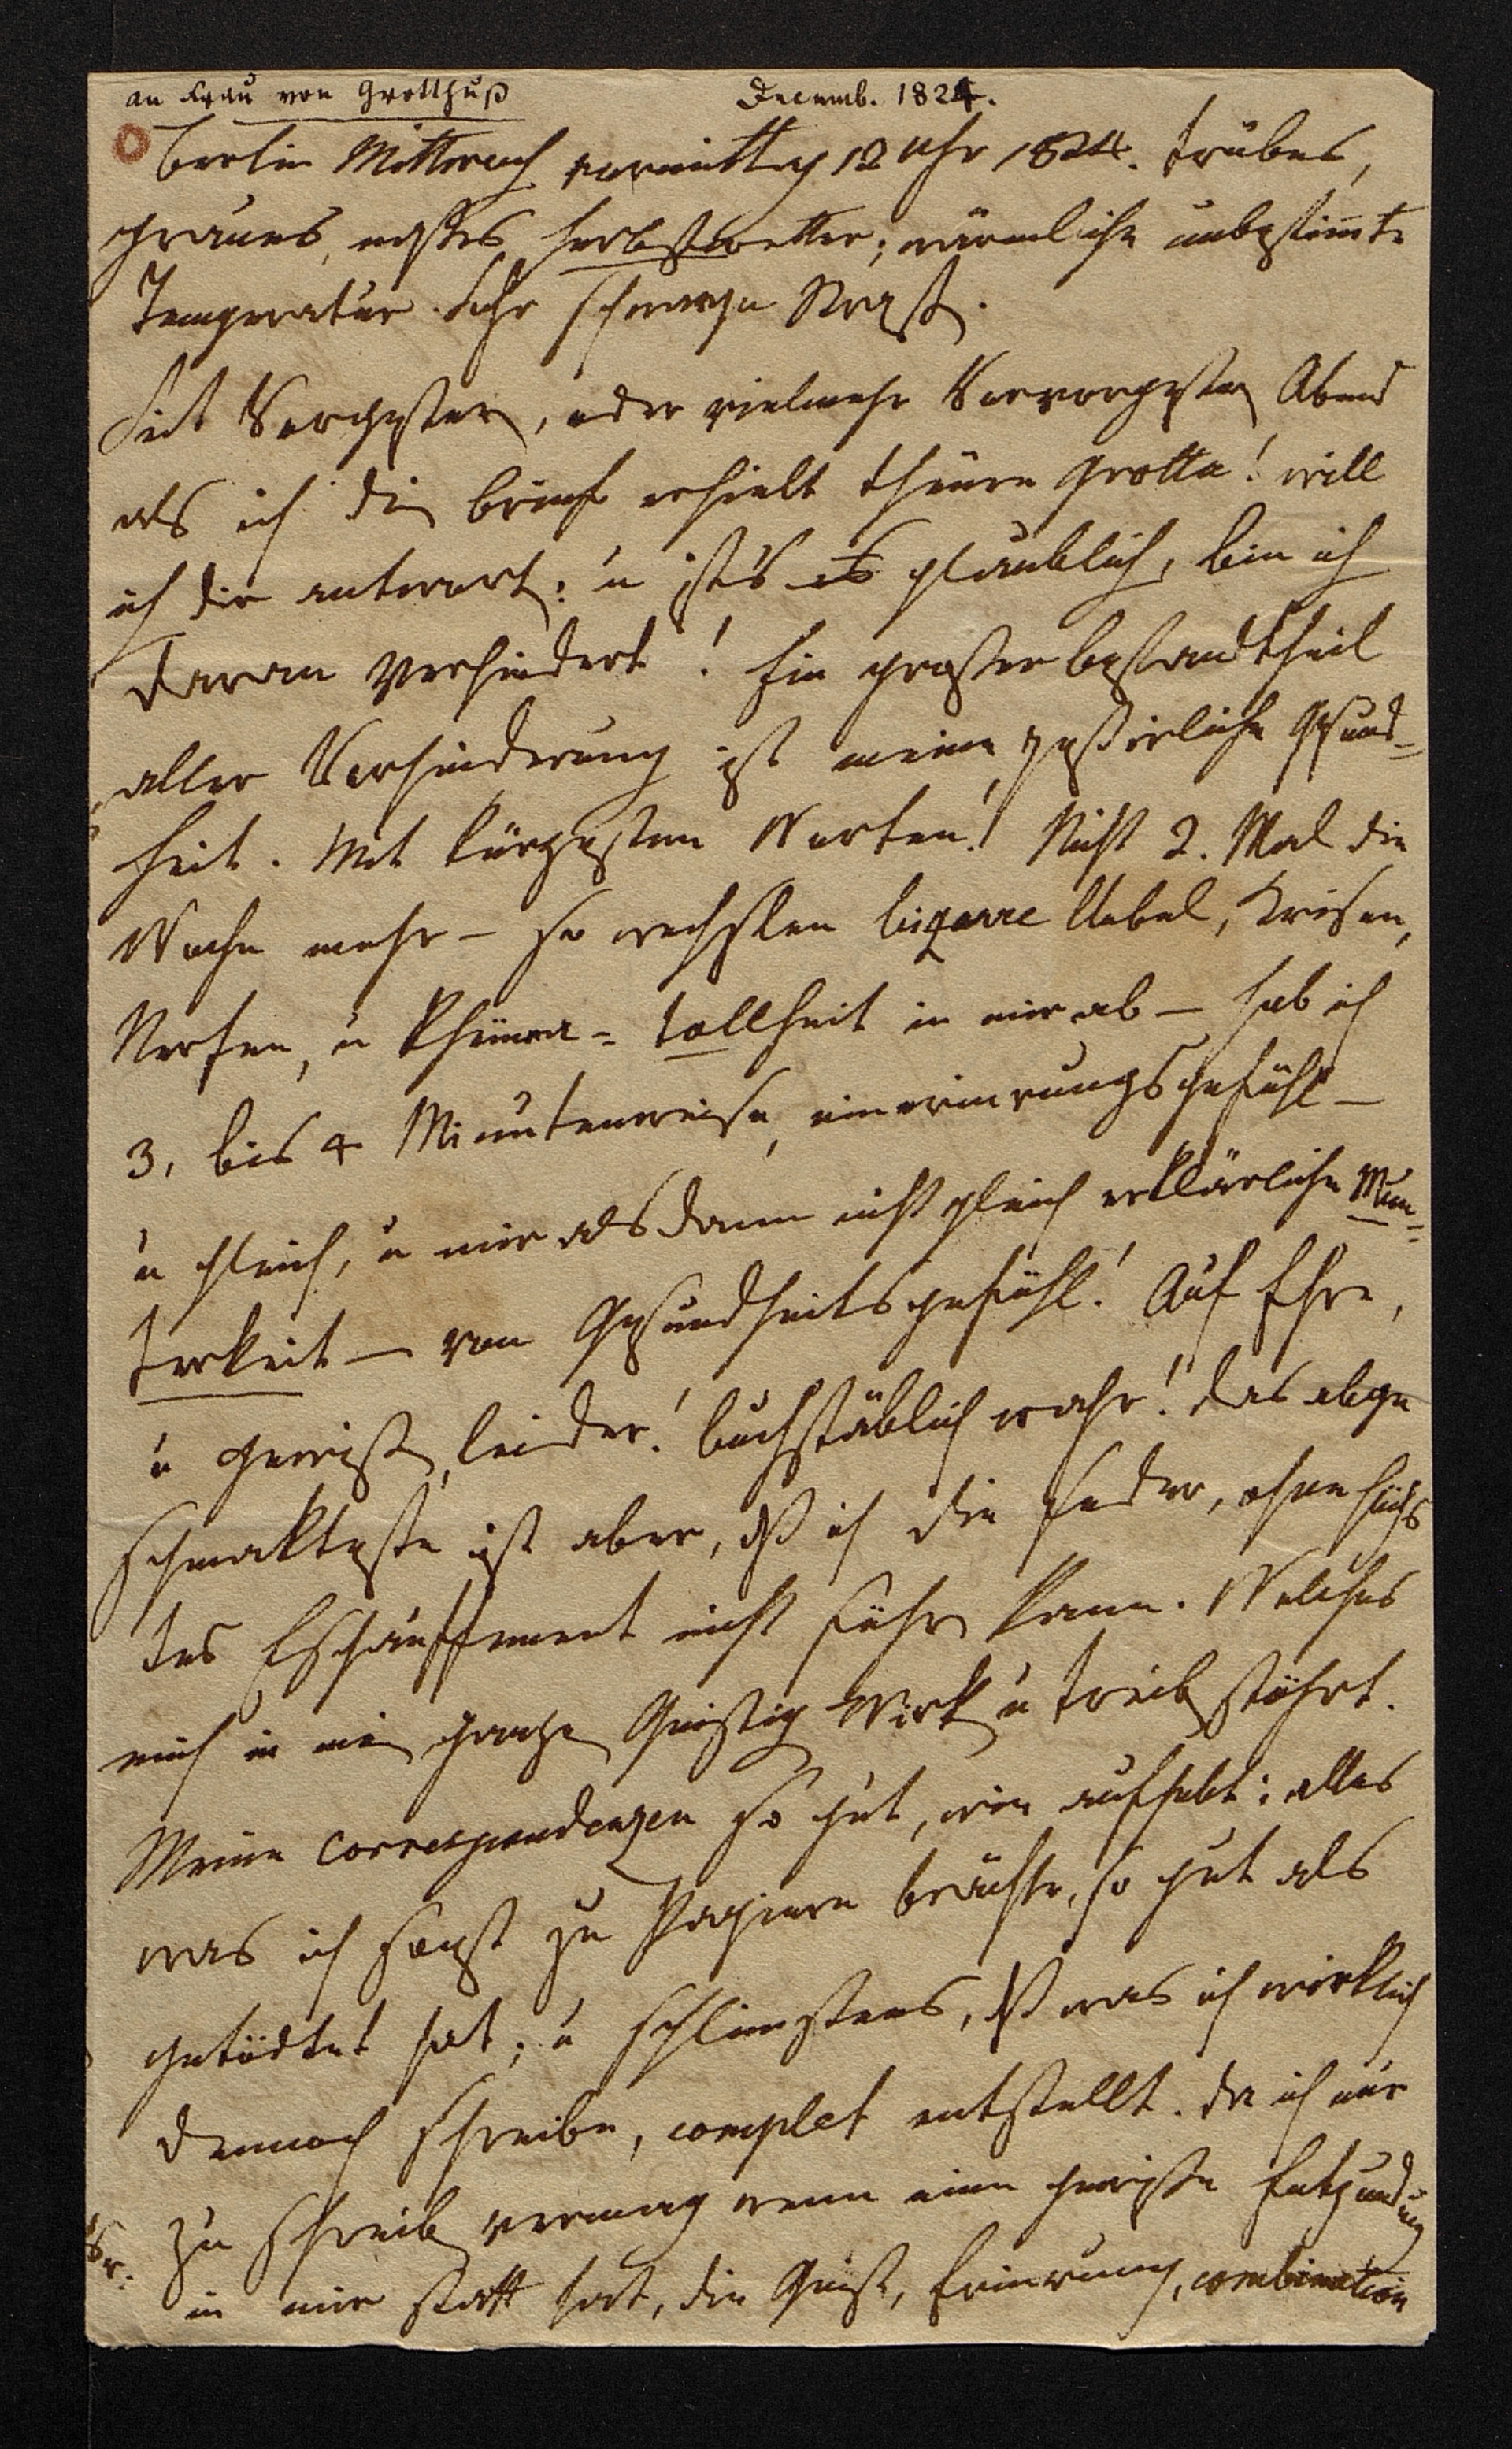 an Frau von Grotthuß Decemb. 1824.
Berlin Mittwoch vormittag 12 Uhr 1824. trübes,
graues, nasses Herbstwetter; wärmliche unbestimte
Temperatur. Sehr schwarze Straß.
Seit Vorgestern, oder vielmehr Vorvorgestern Abend
als ich dein brief erhielt theüre Grotta! will
ich dir antworten; u ist's es glaublich, bin ich
daran verhindert! Ein großer bestandtheil
aller Verhinderung ist meine passirliche Gesund-
heit. Mit kürzesten Worten! Nicht 2. Mal die
Woche mehr – so wechslen bizarre Uebel, Krisen,
Nerfen, u Rheüma-tollheit in mir ab – hab ich
3, bis 4 Minutenweise, ein erinrungsgefühl –
u gleich, u mir alsdann nicht gleich erklärliche Mun-
terkeit – von Gesundheitsgefühl! Auf Ehre,
u gewiß, leider! buchstäblich wahr! das abge
schmakteste ist aber, daß ich die Feder, ohne höchs
tes Eschauffement nicht führen kann. Welches
mich in mein ganzen Geistig Wirken u treiben stöhrt.
Meine Correspondenzen so gut, wie aufhebt; alles
was ich sonst zu Papiere brächte, so gut als
getödtet hat; u schlimstens, daß was ich wirklich
dennoch schreibe, complet entstellt. da ich nur
zu schreiben vermag wenn eine gewisse Entzündung
in mir statt hat, die Geist, Erinrung, combination